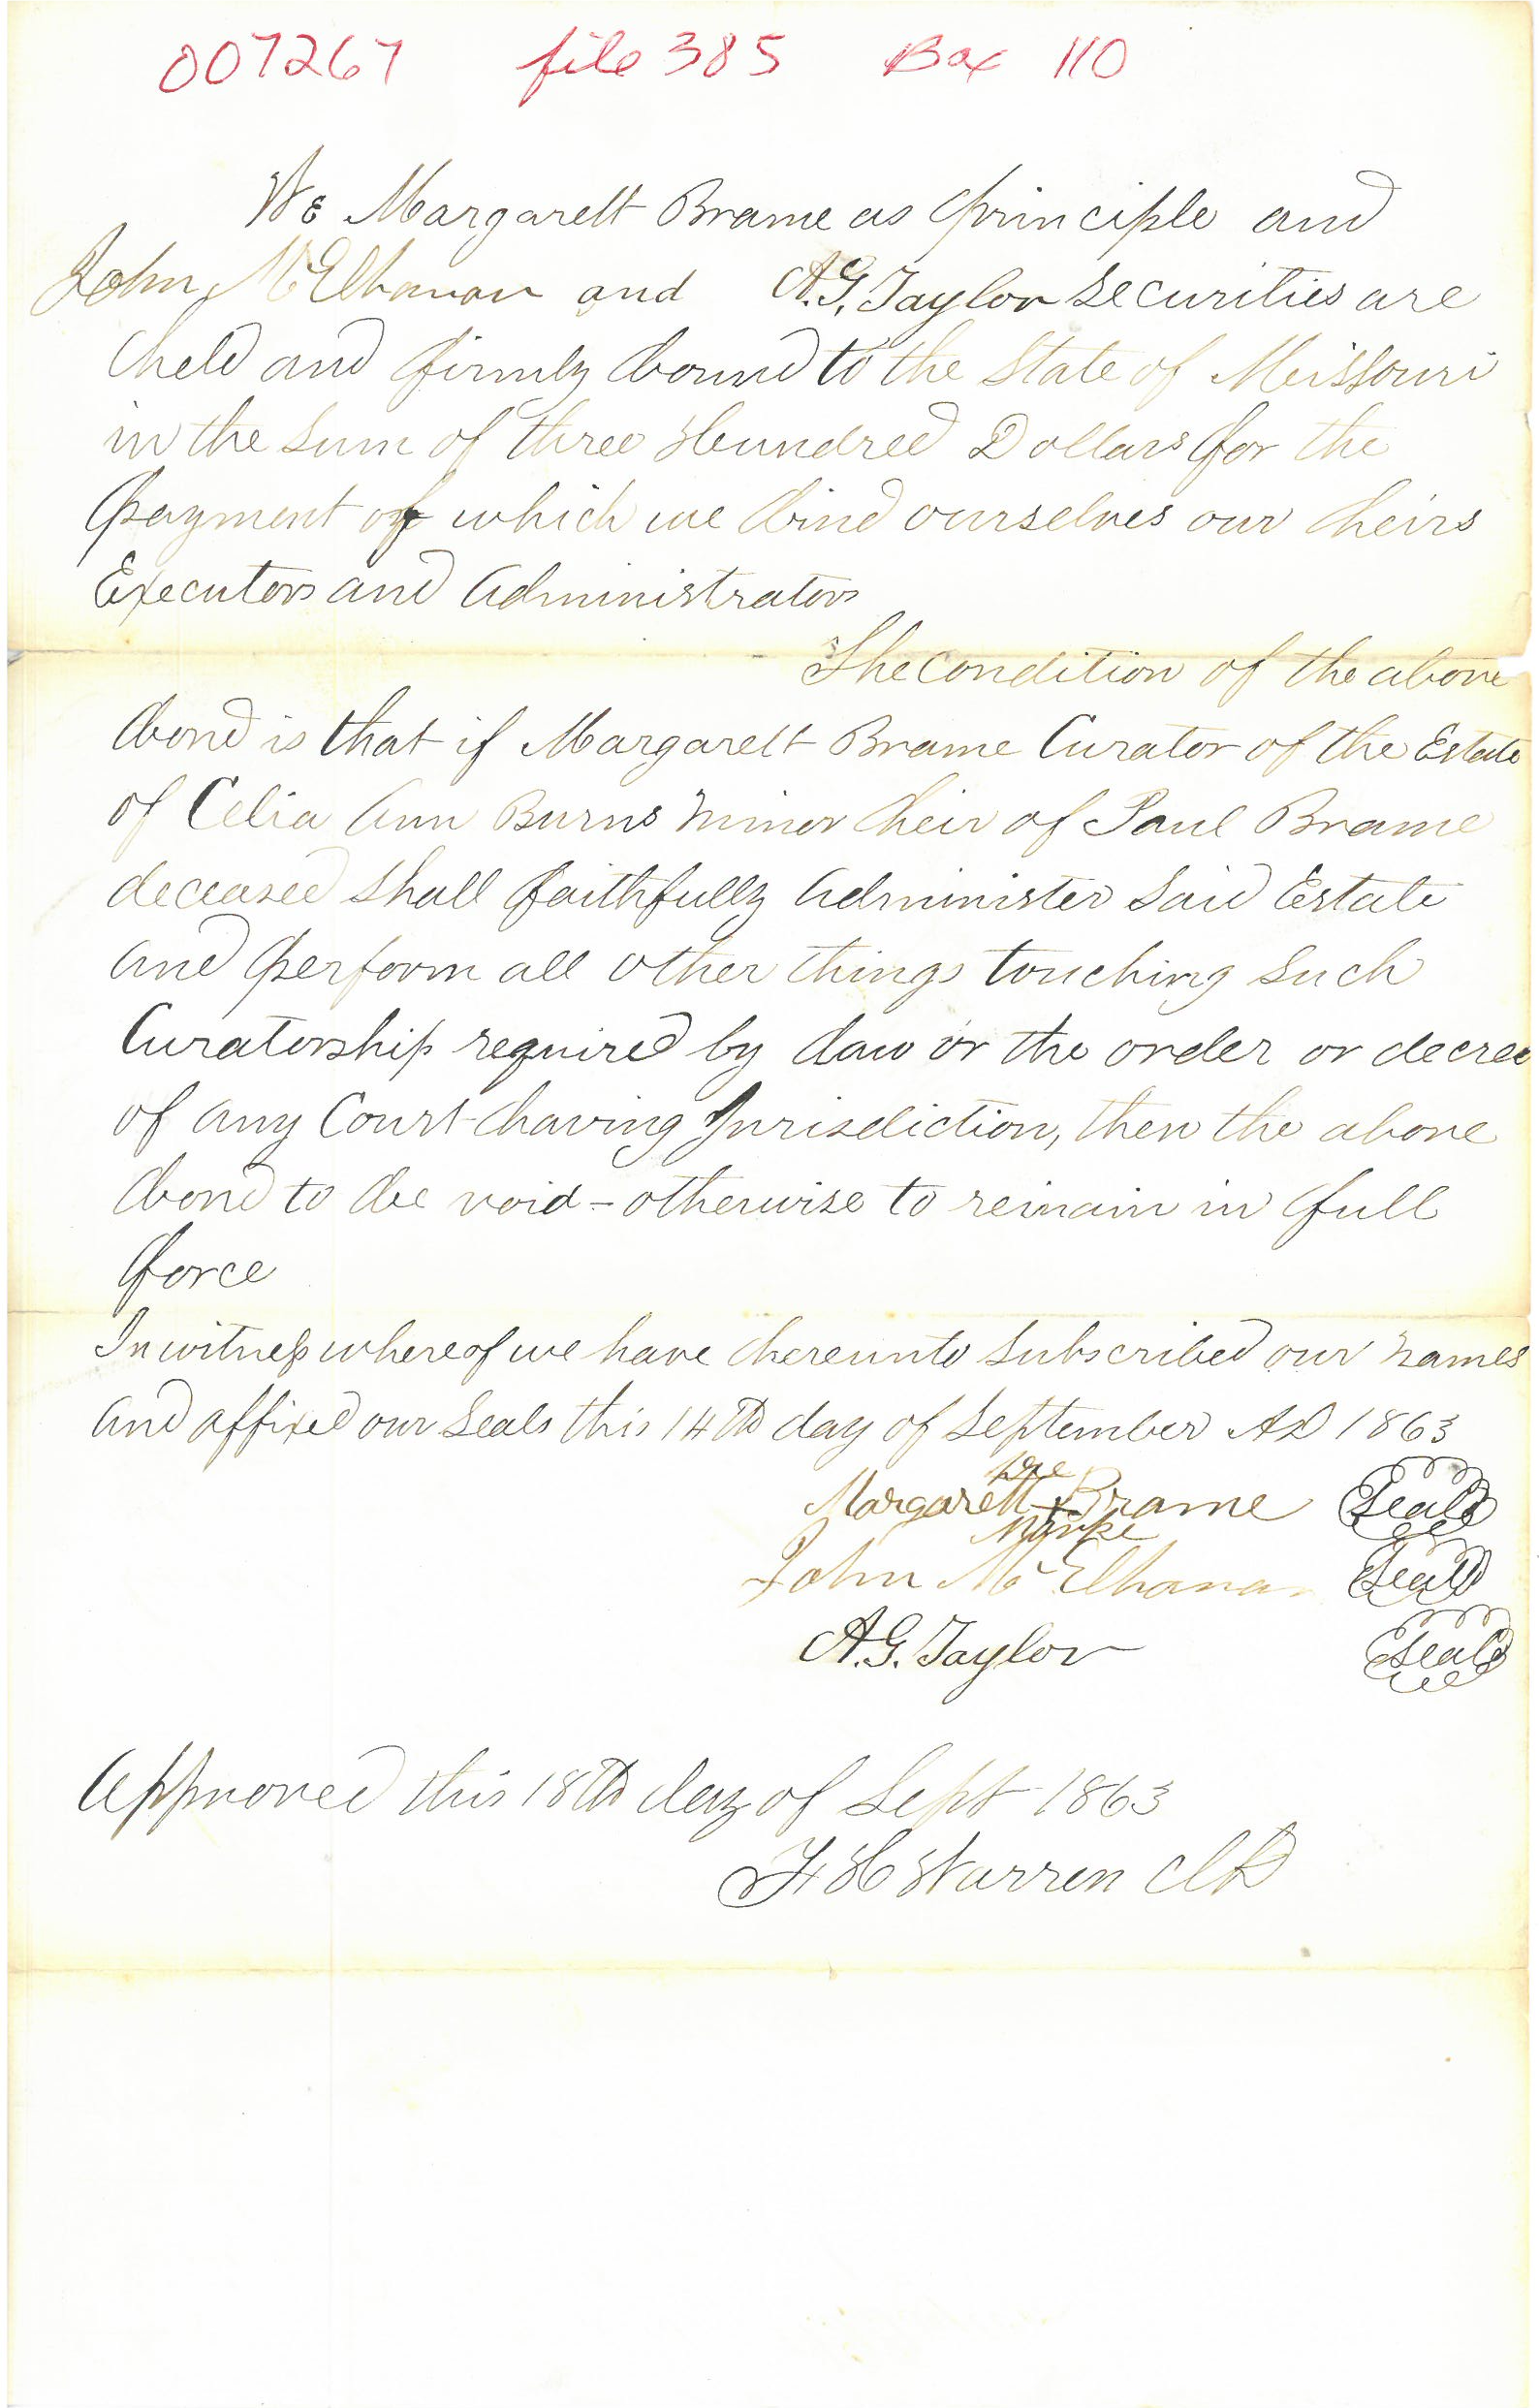 007267 file 385 Box 110
We Margarett Brame as principle and
John McElhanon and A.G. Taylor securities are
held and firmly bound to the State of Missouri
in the sum of three Hundred Dollars for the
payment of which we bind ourselves our heirs
Executors and Administrators
The condition of the above
bond is that if Margarett Brame Curator of the Estate
of Celia Ann Burns minor heir of Paul Brame
deceased shall faithfully Administer said Estate
and perform all other things touching such
Curatorship required by law or the order or decree
of any Court having Jurisdiction, then the above
bond to be void - otherwise to remain in full
force
In witness whereof we have hereunto subscribed our names
and affixed our seals this 14th day of September AD 1863
her
Margarett x Brame Seal
marke
John McElhanan Seal
A.G. Taylor Seal
Approved this 18th day of Sept 1863
F H Warren Clk